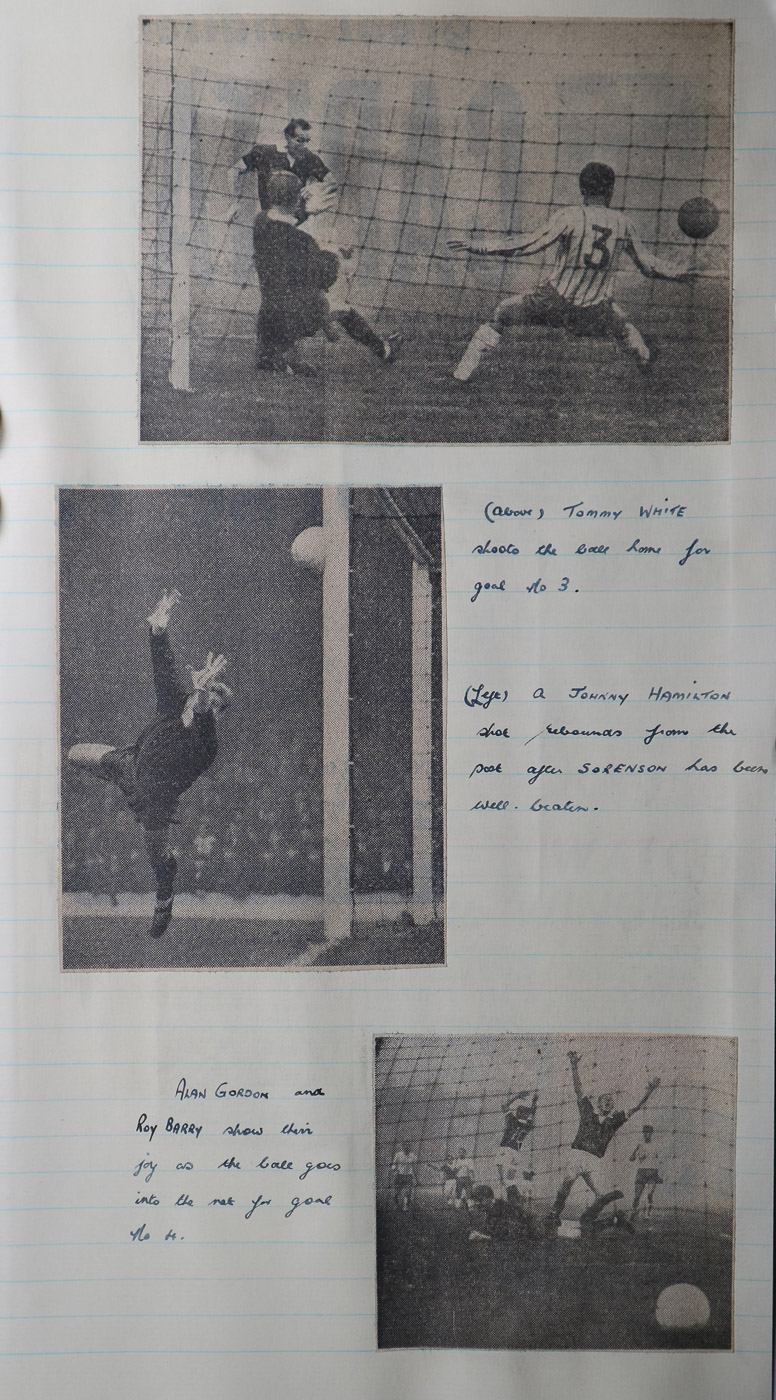 3
(Above) TOMMY WHITE
shoots the ball home for
goal No 3.
(Left) A JOHNNY HAMILTON
shot rebounds from the
post after SORENSON has been
well-beaten.
ALAN GORDON and
ROY BARRY show their
joy as the ball goes
into the net for goal
No 4.